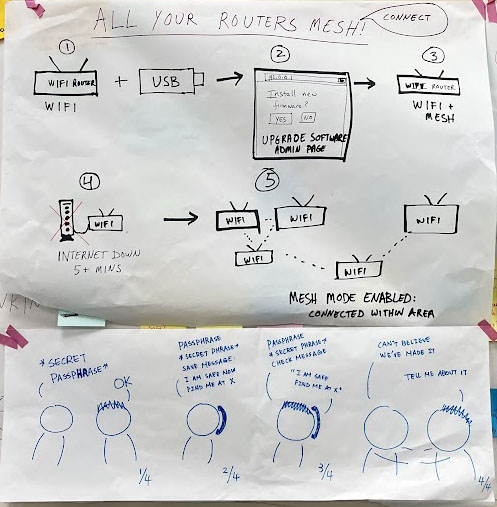 ALL YOUR ROUTERS MESH!
CONNECT
1
WIFI ROUTER
WIFI
+
USB
2
Install new
firmware?
YES NO
UPGRADE SOFTWARE
ADMIN PAGE
3
WIFI ROUTER
WIFI +
MESH
4
WIFI
INTERNET DOWN
5+ MINS
5
WIFI
WIFI
WIFI
WIFI
WIFI
MESH MODE ENABLED:
CONNECTED WITHIN AREA
*SECRET
PASSPHRASE*
OK
1/4
PASSPHRASE
*SECRET PHRASE*
SAVE MESSAGE
I AM SAFE NOW
FIND ME AT X
2/4
PASSPHRASE
*SECRET PHRASE*
CHECK MESSAGE
"I AM SAFE
FIND ME AT X"
3/4
CAN'T BELIEVE
WE'VE MADE IT
TELL ME ABOUT IT
4/4